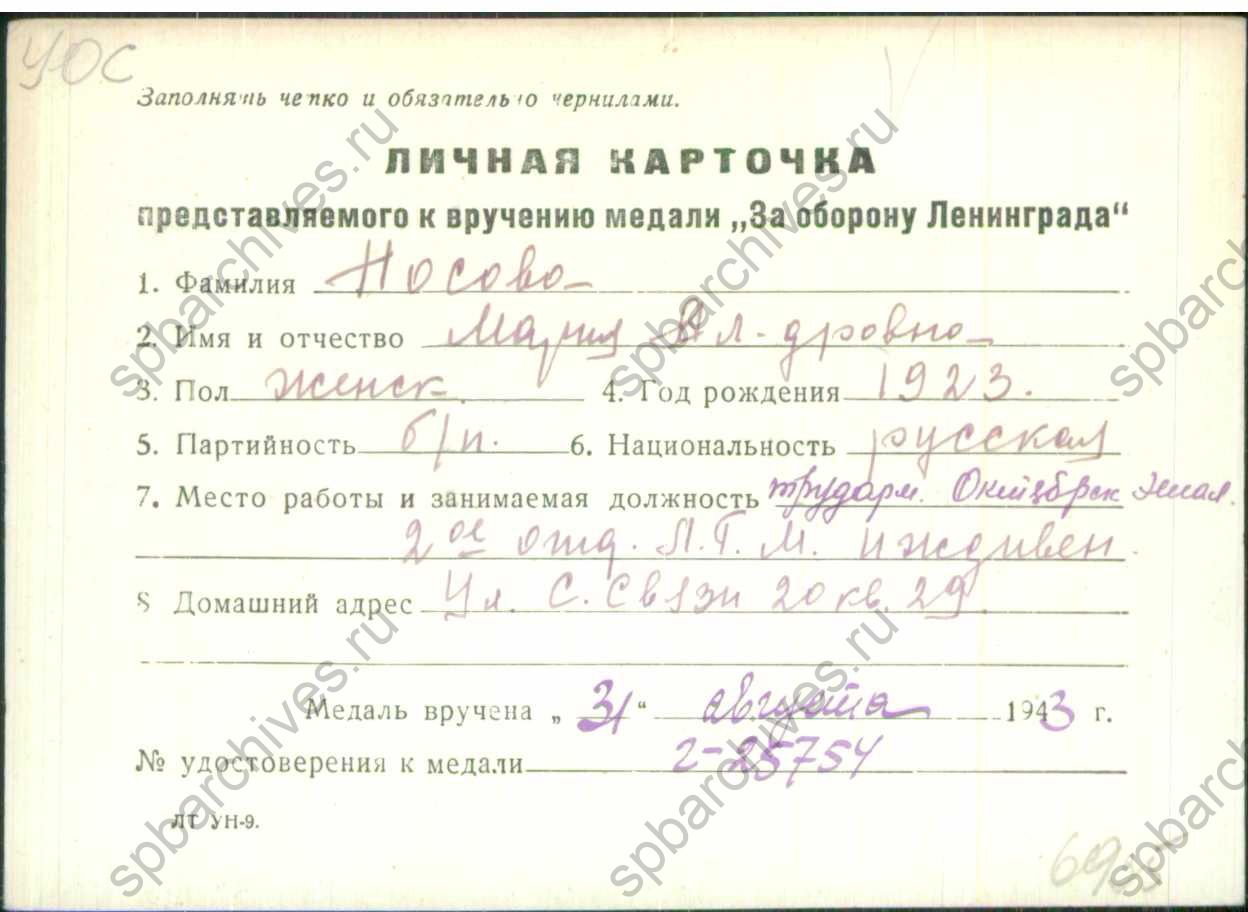 УОС
Заполнять четко и обязательно чернилами.
ЛИЧНАЯ КАРТОЧКА
представляемого к вручению медали „За оборону Ленинграда“
1. Фамилия Носова
2. Имя и отчество Мария Ал-дровна
3. Пол женск. 4. Год рождения 1923.
5. Партийность б/п. 6. Национальность русская
7. Место работы и занимаемая должность трударм. Октябрск
2ое отд. Л.Т.М. иждивен.
8 Домашний адрес Ул. С. Связи 20 кв. 29
Медаль вручена „31“ августа 1943 г.
№ удостоверения к медали 2-25754
ЛТ УН-9.
spbarchives.ru